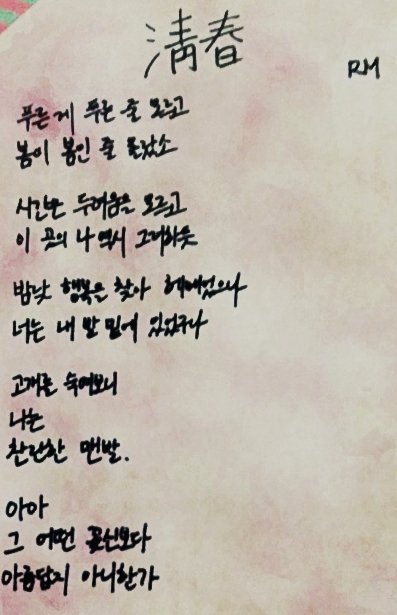 靑春
RM
푸른 게 푸른 줄 모르고
봄이 봄인 줄 몰랐소
시간만 두려움을 모르고
이 곳의 나 역시 그러하듯
밤낮 행복을 찾아 헤매었으나
너는 내 발 밑에 있었구나
고개를 숙여보니
나는
찬란한 맨발.
아아
그 어떤 꽃신보다
아름답지 아니한가